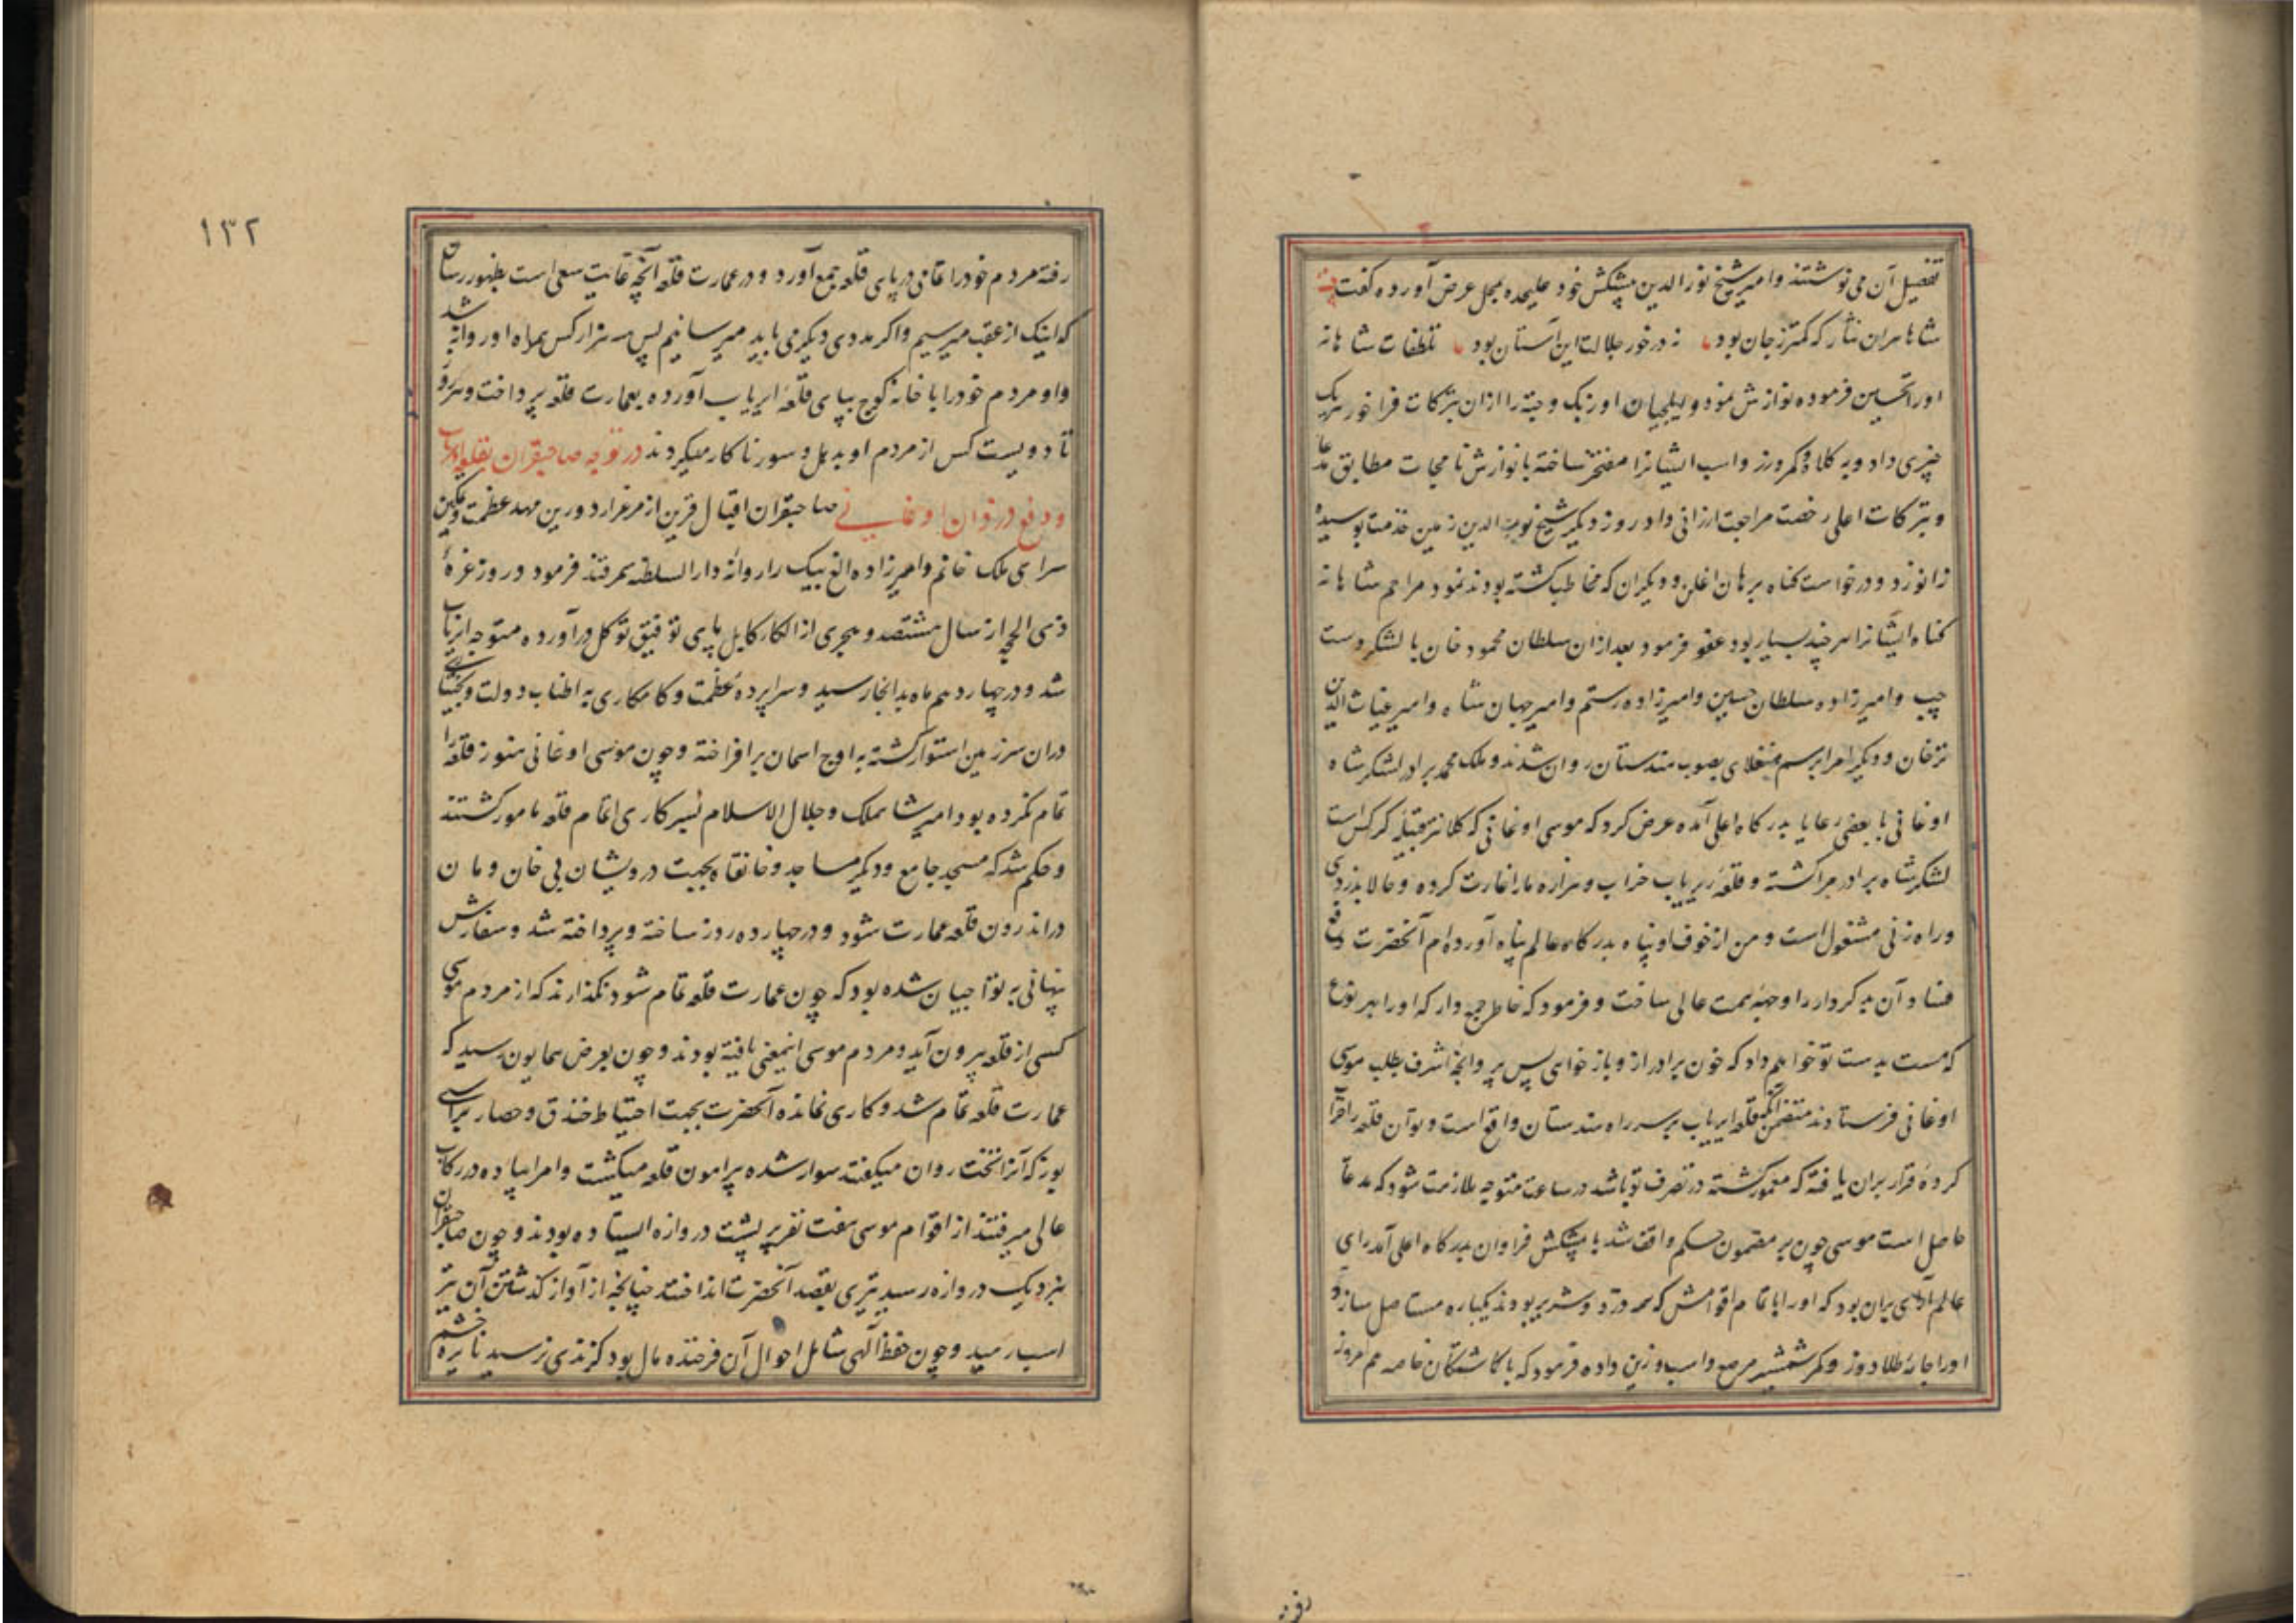 تفصیل آن می نوشتند و امیر شیخ نور الدین پیشکش خود علیحده بمحل عرض آورده گفت
شاها بران نثار که کمتر ز جان بود نه در خور جلالت این آستان بود تلطفات شاهانه
اورا تحسین فرموده نوازش نمود و ایلچیان اوزبک و جته را ازان تبرکات فراخور هریک
چیزی داد و به کلاه و کمر و زر و اسب ایشانرا مفتخر ساخته با نوازش نامجات مطابق مدعا
و تبرکات اعلی رخصت مراجعت ارزانی داد روز دیگر شیخ نور الدین زمین خدمت بوسیده
زانو زد و درخواست کناه برهان اغلن و دیکران که مخاطب کشته بودند نمود مراحم شاهانه
کناه ایشانرا هر چند بسیار بود عفو فرمود بعد ازان سلطان محمود خان با لشکر دست
چپ و امیرزاده سلطان حسین و امیرزاده رستم و امیر جهان شاه و امیر غیاث الدین
ترخان و دیکر امرا برسم منغلای بصوب هندستان روان شدند و ملک محمد برادر لشکر شاه
اوغانی با بعضی رعایا بدرکاه اعلی آمده عرض کرد که موسی اوغانی که کلانتر قبیله کرکس است
لشکر شاه برادر مرا کشته و قلعه ایریاب خراب و هزاره ما را غارت کرده و حالا بدزدی
و راه زنی مشغول است و من از خوف او پناه بدرکاه عالم پناه آورده ام آنحضرت دفع
فساد آن بدکردار را وجهه همت عالی ساخت و فرمود که خاطر جمع دار که اورا بهر نوع
که هست بدست تو خواهم داد که خون برادر ازو باز خواهی پس پروانچه اشرف بطلب موسی
اوغانی فرستادند متضمن آنکه قلعه ایریاب بر سر راه هندستان واقع است و تو آن قلعه را خراب
کرده قرار بران یافته که معمور کشته در تصرف تو باشد در ساعت متوجه ملازمت شود که مدعا
حاصل است موسی چون بر مضمون حکم واقف شد با پیشکش فراوان بدرکاه اعلی آمد رای
عالم آرای بران بود که اورا با تمام اقوامش که همه دزد و شریر بودند یکباره مستاصل سازد
اورا جامه طلادوز و کمر شمشیر مرصع و اسب و زین داده فرمود که با کاشتکان خاصه هم امروز
رفته
۱۳۲
رفته مردم خود را اغانی در پای قلعه جمع آورد و در عمارت قلعه آنچه غایت سعی است بظهور رسان
که اینک از عقب میرسیم و اکر مددی دیکر می باید میرسانیم پس سه هزار کس همراه او روانه شد
و او مردم خود را با خانه کوچ بپای قلعه ایریاب آورده بعمارت قلعه پرداخت و هر روز
تا دویست کس از مردم او بدهل و سورنا کار میکردند در توجه صاحبقران بقلعه ایریاب
و دفع دزدان اوغانی صاحبقران اقبال قرین از مرغزار دورین مهد عظمت و تمکین
سرای ملک خانم و امیرزاده الغ بیک را روانه دار السلطنه سمرقند فرمود و روز غره
ذی الحجه از سال هشتصد هجری از الکار کابل پای توفیق توکل درآورده متوجه ایریاب
شد و در چهاردهم ماه بدانجا رسید و سراپرده عظمت و کامکاری به اطناب دولت و بختیاری
دران سرزمین استوار کشته به اوج اسمان برافراخته و چون موسی اوغانی هنوز قلعه را
تمام نکرده بود امیر شاهملک و جلال الاسلام بسرکاری اتمام قلعه مامور کشتند
و حکم شد که مسجد جامع و دیکر مساجد و خانقاه بجهت درویشان بی خان و مان
در اندرون قلعه عمارت شود و در چهارده روز ساخته و پرداخته شد و سفارش
پنهانی به تواجیان شده بود که چون عمارت قلعه تمام شود نکذارند که از مردم موسی
کسی از قلعه بیرون آید و مردم موسی اینمعنی یافته بودند و چون بعرض همایون رسید که
عمارت قلعه تمام شد و کاری نمانده آنحضرت بجهت احتیاط خندق و حصار براسپ
بوز که آنرا تخت روان میکفتند سوار شده پیرامون قلعه میکشت و امرا پیاده در رکاب
عالی میرفتند از اقوام موسی هفت نفر بر پشت دروازه ایستاده بودند و چون صاحبقران
بنزدیک دروازه رسید تیری بقصد آنحضرت انداختند چنانچه از آواز کذشتن آن تیر
اسب رمید و چون حفظ آلهی شامل احوال آن فرخنده مال بود کزندی نرسید نایره خشم